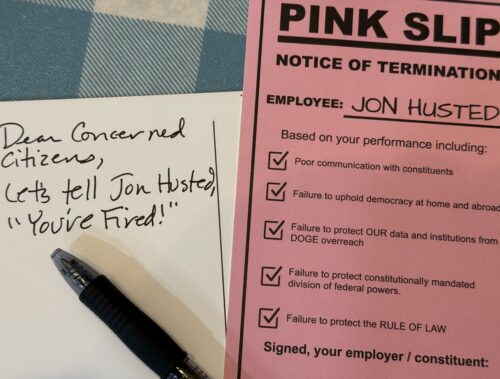 Dear Concerned
Citizens,
Lets tell Jon Husted,
"You're Fired!"
PINK SLIP
NOTICE OF TERMINATION
EMPLOYEE: JON HUSTED
Based on your performance including:
Poor communication with constituents
Failure to uphold democracy at home and abroad
Failure to protect OUR data and institutions from
DOGE overreach
Failure to protect constitutionally mandated
division of federal powers.
Failure to protect the RULE OF LAW
Signed, your employer / constituent: